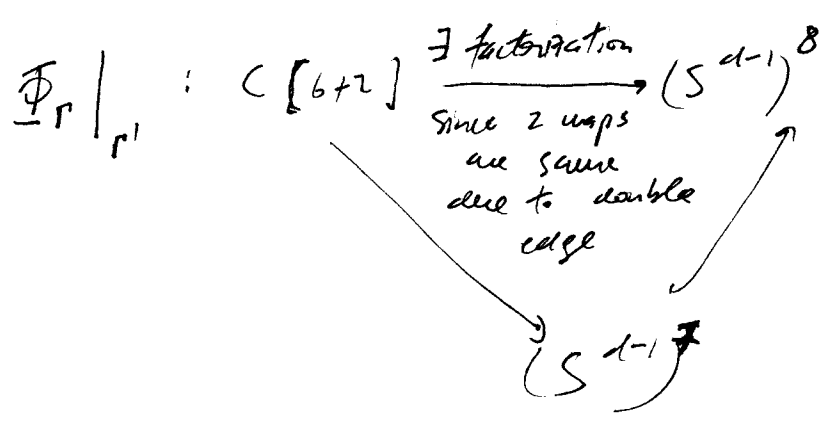 Φ_Γ|_Γ' : C[6+2] ∃ factorization → (S^{d-1})^8
since 2 maps
are same
due to double
edge
(S^{d-1})^7